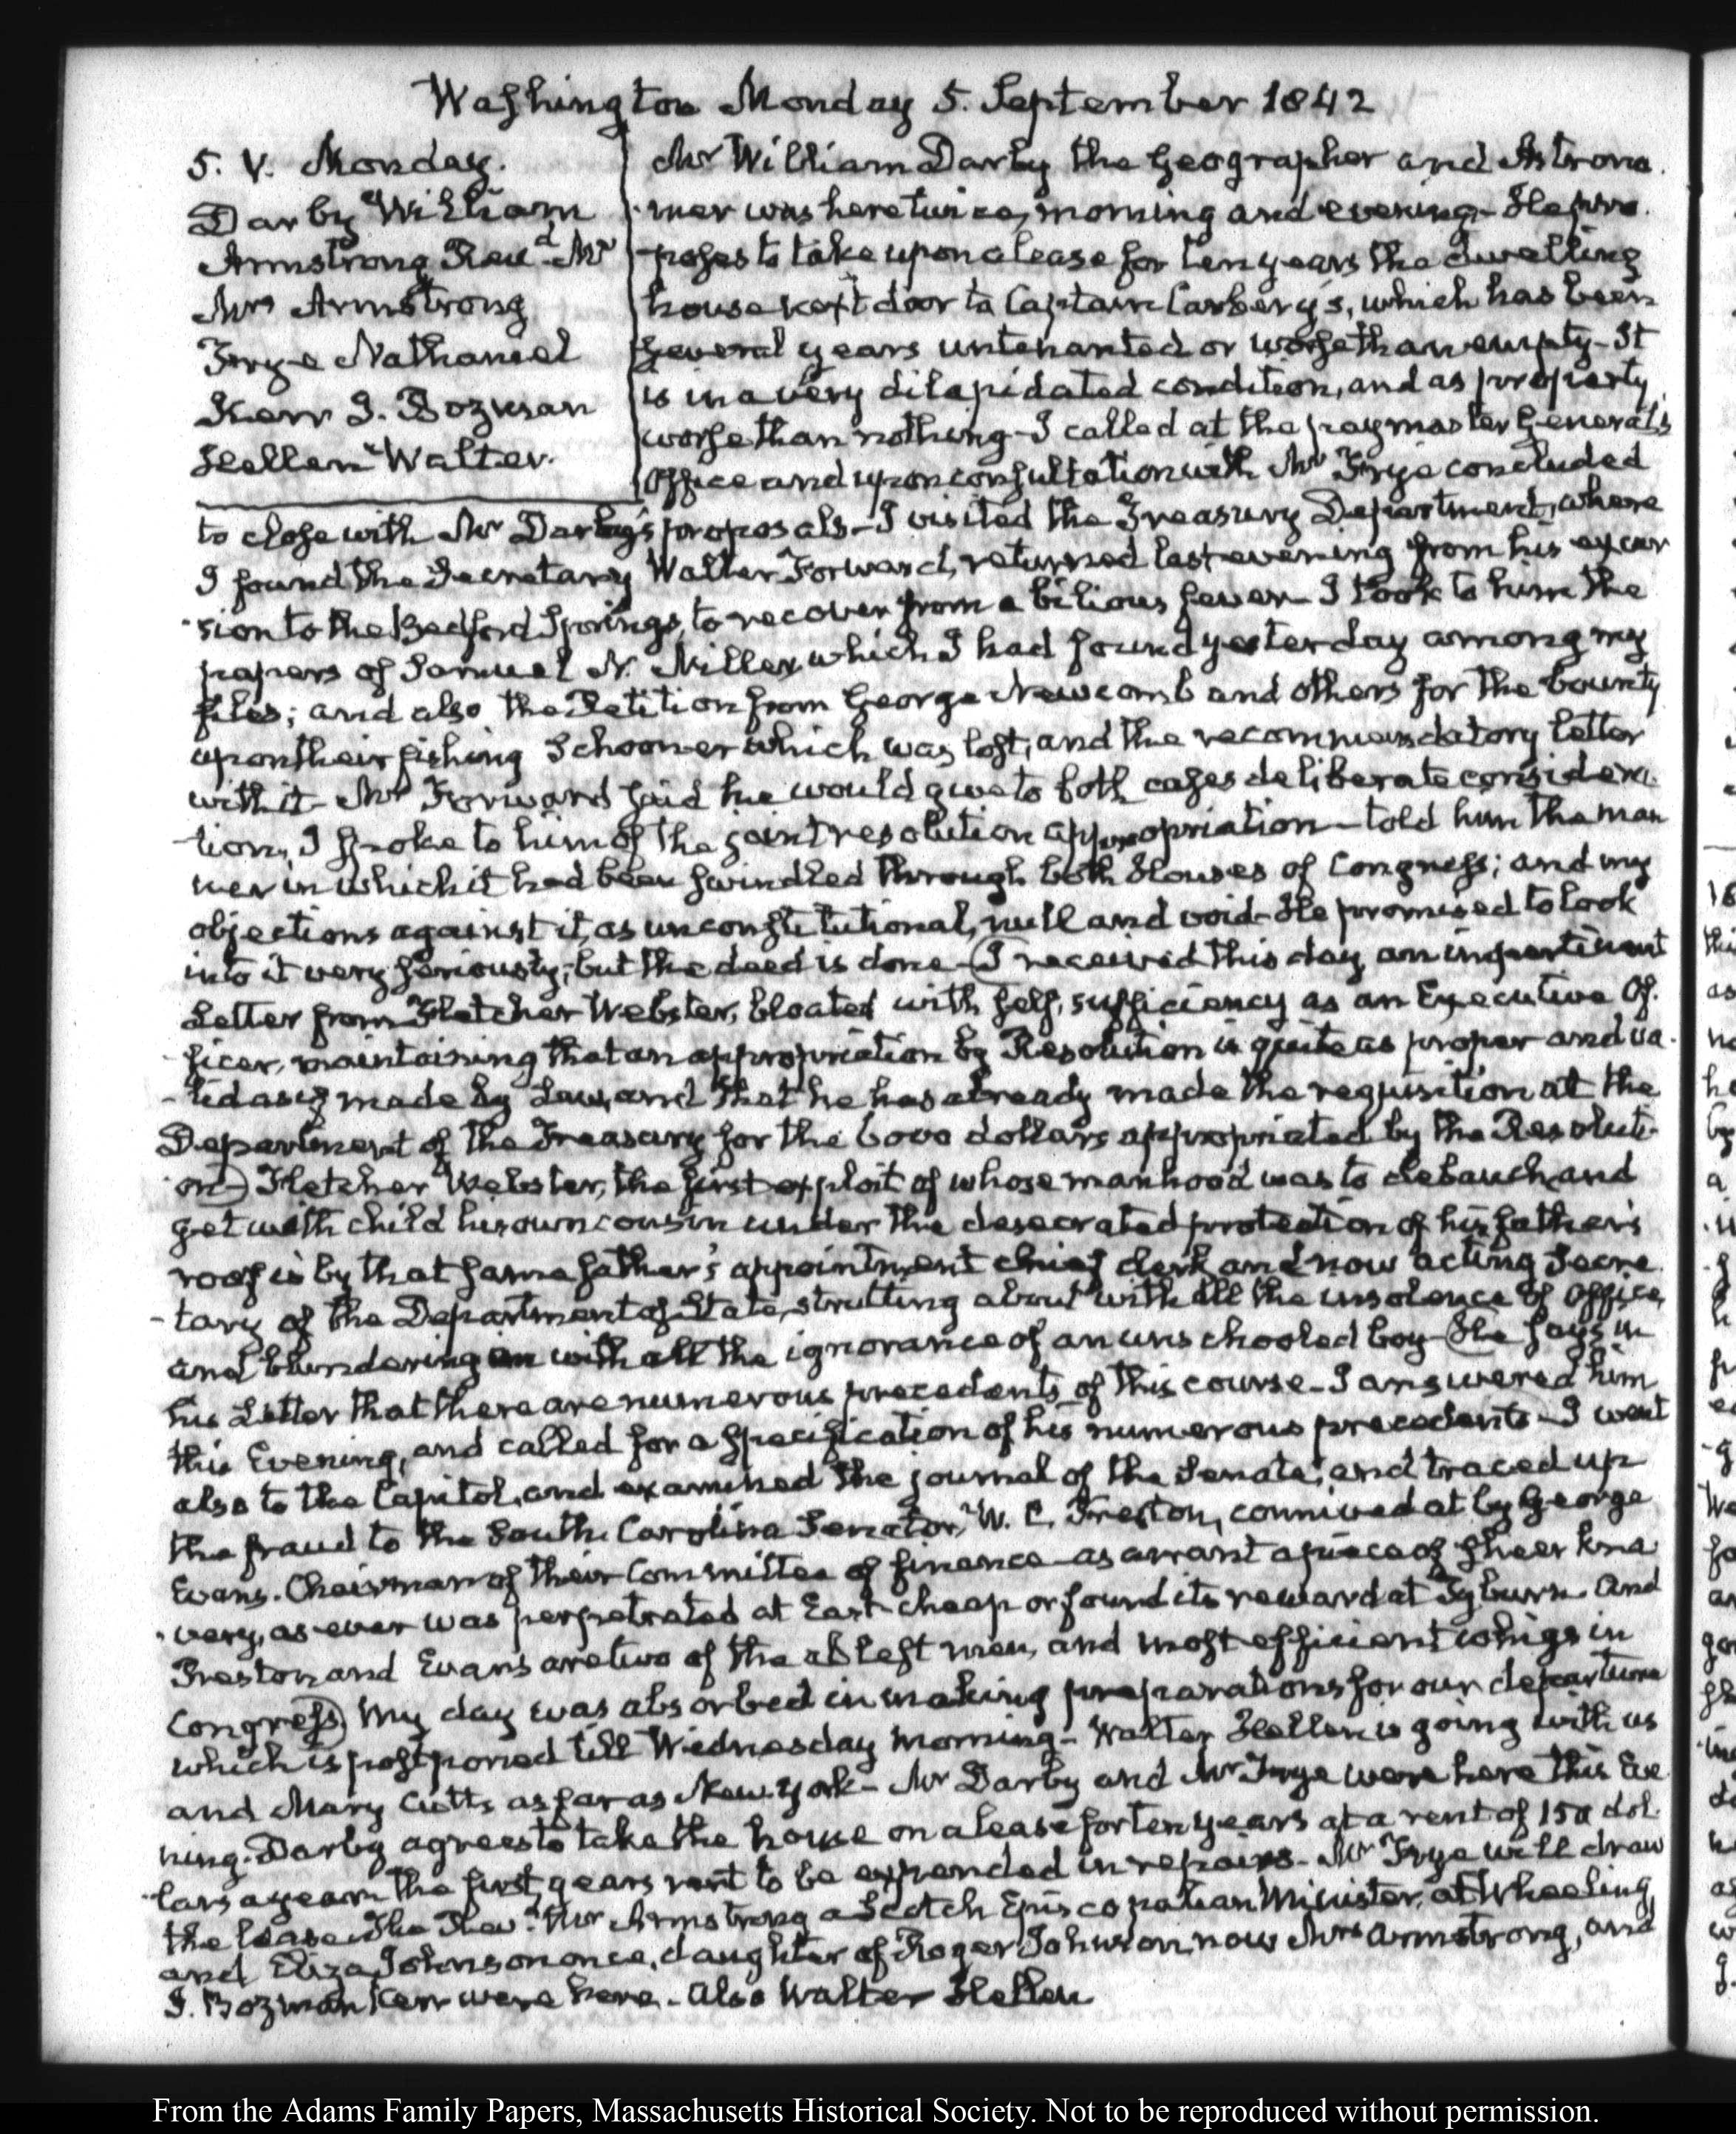 Washington Monday 5. September 1842
5. V. Monday.
Darby William
Armstrong Revd. Mr
Mrs Armstrong
Frye Nathaniel
Kerr J. Bozman
Hellen Walter.
Mr William Darby the Geographer and Astrono
-mer was here twice, morning and evening- He pro-
-poses to take upon a lease for ten years the dwelling
house next door to Captain Carbery's, which has been
several years untenanted or worse than empty- It
is in a very dilapidated condition, and as property
worse than nothing- I called at the paymaster General's
Office and upon consultation with Mr Frye concluded
to close with Mr Darby's proposals- I visited the Treasury Department, where
I found the Secretary Walter Forward, returned last evening from his excur
-sion to the Bedford Springs, to recover from a bilious fever- I took to him the
papers of Samuel N. Miller which I had found yesterday among my
files; and also the Petition from George Newcomb and others for the bounty
upon their fishing Schooner which was lost, and the recommendatory letter
with it- Mr Forward said he would give to both cases deliberate considera-
-tion, I spoke to him of the joint resolution appropriation- told him the man
ner in which it had been swindled through both Houses of Congress; and my
objections against it, as unconstitutional, null and void- He promised to look
into it very seriously; but the deed is done- (I received this day an impertinent
Letter from Fletcher Webster, bloated with self, sufficiency as an Executive Of-
-ficer, maintaining that an appropriation by Resolution is quite as proper and va-
-lid as if made by Law, and that he has already made the requisition at the
Department of the Treasury for the 6000 dollars appropriated by the Resoluti-
-on-) Fletcher Webster, the first exploit of whose manhood was to debauch and
get with child his own cousin under the desecrated protection of his father's
roof is by that same father's appointment chief clerk and now acting Secre
-tary of the Department of State, strutting about with all the insolence of Office,
and blundering with all the ignorance of an unschooled boy- (He says in
his Letter that there are numerous precedents of this course- I answered him
this Evening, and called for a specification of his numerous precedents- I went
also to the Capitol, and examined the journal of the Senate, and traced up
the fraud to the South Carolina Senator, W. C. Preston, connived at by George
Evans. Chairman of their Committee of finance- as arrant a piece of sheer kna
-very, as ever was perpetrated at East-cheap or found its reward at Tyburn- And
Preston and Evans are two of the ablest men, and most efficient whigs in
Congress) My day was absorbed in making preparations for our departure
which is postponed till Wednesday morning- Walter Hellen is going with us
and Mary Cutts as far as New York- Mr Darby and Mr Frye were here this Eve
ning. Darby agrees to take the house on a lease for ten years at a rent of 150 dol-
-lars a year- the first years rent to be expended in repairs- Mr Frye will draw
the lease- The Revd. Mr Armstrong a Scotch Episcopalian Minister, at Wheeling
and Eliza Johnson once, daughter of Roger Johnson, now Mrs Armstrong, and
J. Bozman Kerr were here- also Walter Hellen
From the Adams Family Papers, Massachusetts Historical Society. Not to be reproduced without permission.